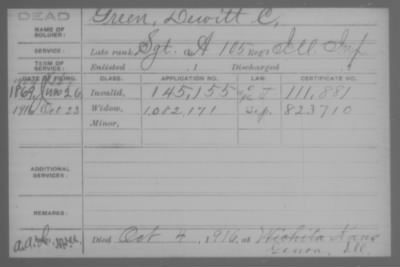 DEAD
NAME OF SOLDIER: Green, Dewitt C.
SERVICE: Late rank, Sgt. Co. A 105 Reg't Ill Inf
TERM OF SERVICE: Enlisted , 1 Discharged , 1
DATE OF FILING. CLASS. APPLICATION NO. LAW. CERTIFICATE NO.
1869, 26 Invalid, 145,155 111,881
1916 Oct 23 Widow, 1,082,171 Sep. 823710
Minor,
ADDITIONAL SERVICES:
REMARKS:
Died Oct 4, 1916, at Wichita Kans
Ill.